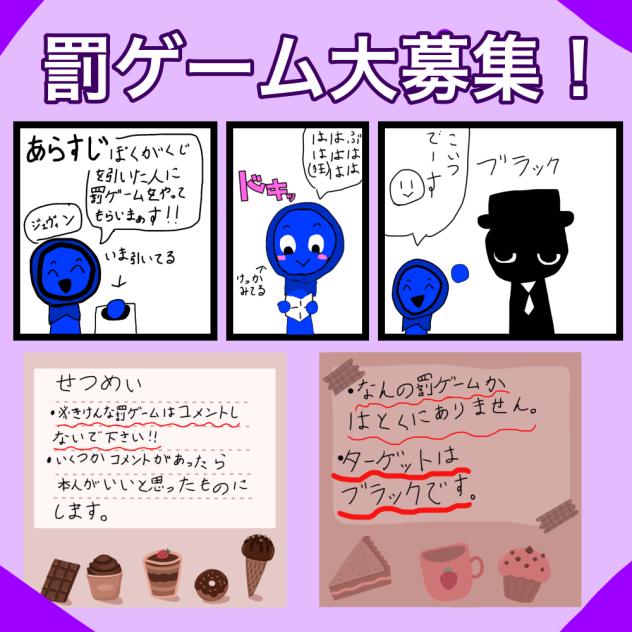 罰ゲーム大募集!
あらすじ ぼくがくじ
を引いた人に
罰ゲームをやって
もらいまぁす!!
ジェヴィン
いま引いてる
ドキッ
ぶはは
ははは
はは(狂)
けっか
みてる
こいつ
でーす
ブラック
せつめい
・※きけんな罰ゲームはコメントし
ないで下さい!!
・いくつかコメントがあったら
本人がいいと思ったものに
します。
・なんの罰ゲームか
はとくにありません。
・ターゲットは
ブラックです。